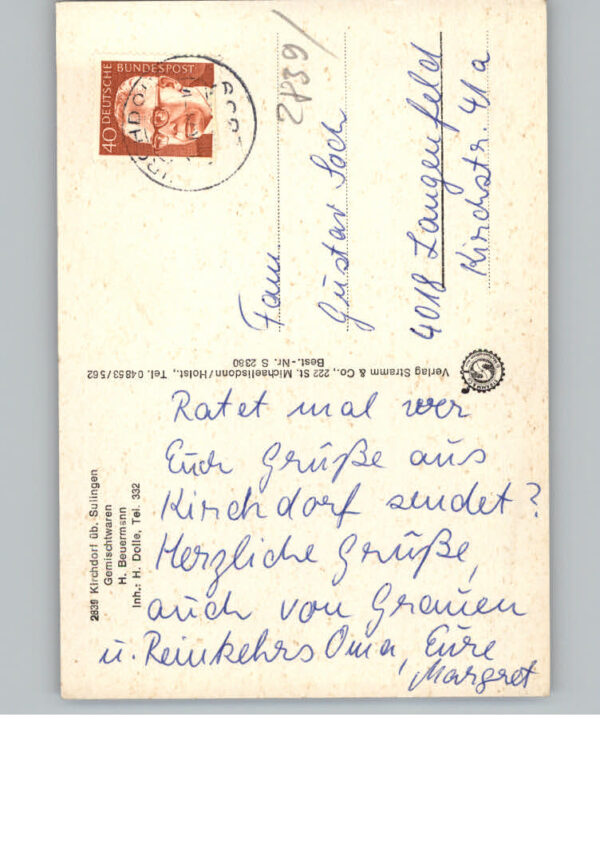 Ratet mal wer
Euch Grüße aus
Kirchdorf sendet?
Herzliche Grüße,
auch von Grauen
u. Reinkehrs Oma, Eure
Margret
2839 Kirchdorf üb. Sulingen
Gemischtwaren
H. Beuermann
Inh.: H. Dolle, Tel. 332
Verlag Stramm & Co., 222 St. Michaelisdonn/Holst., Tel. 04853/562
Best.-Nr. S 2380
40 DEUTSCHE BUNDESPOST
2839
Fam
Gustav
4018 Langenfeld
Kirchstr. 41a